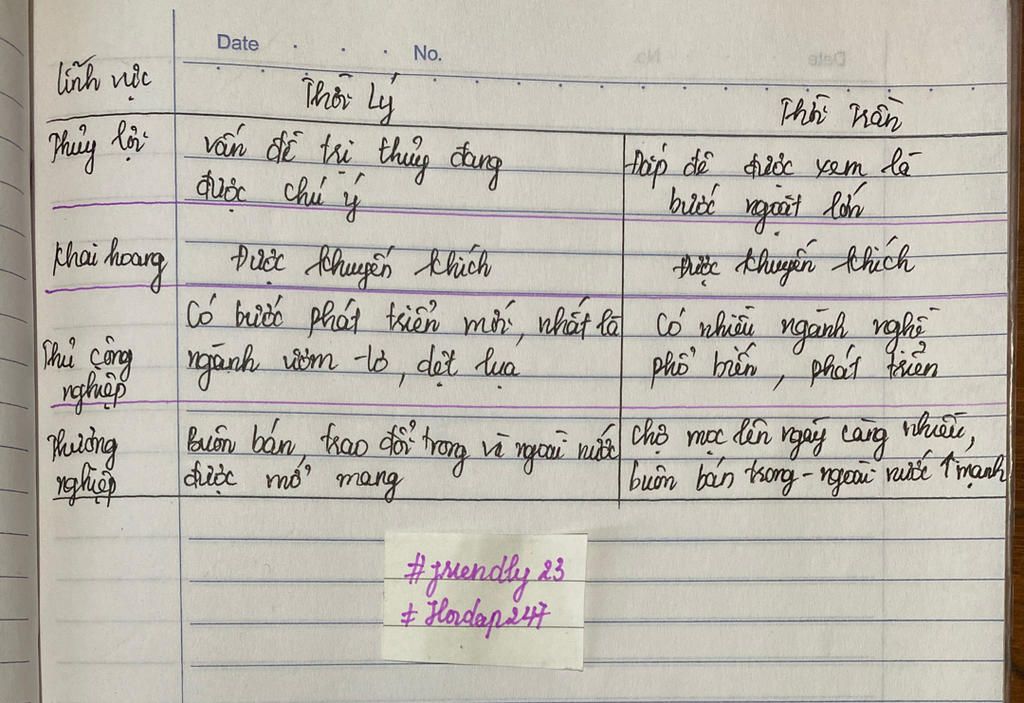 Date No.
Lĩnh vực
Thời Lý
Thời Trần
Thủy lợi
Vấn đề trị thủy đang
được chú ý
Đắp đê được xem là
bước ngoặt lớn
Khai hoang
Được khuyến khích
Được khuyến khích
Thủ công
nghiệp
Có bước phát triển mới, nhất là
ngành ươm tơ, dệt lụa
Có nhiều ngành nghề
phổ biến, phát triển
Thương
nghiệp
Buôn bán, trao đổi trong và ngoài nước
được mở mang
Chợ mọc lên ngày càng nhiều,
buôn bán trong - ngoài nước ↑ mạnh
#friendly23
#Hoidap247